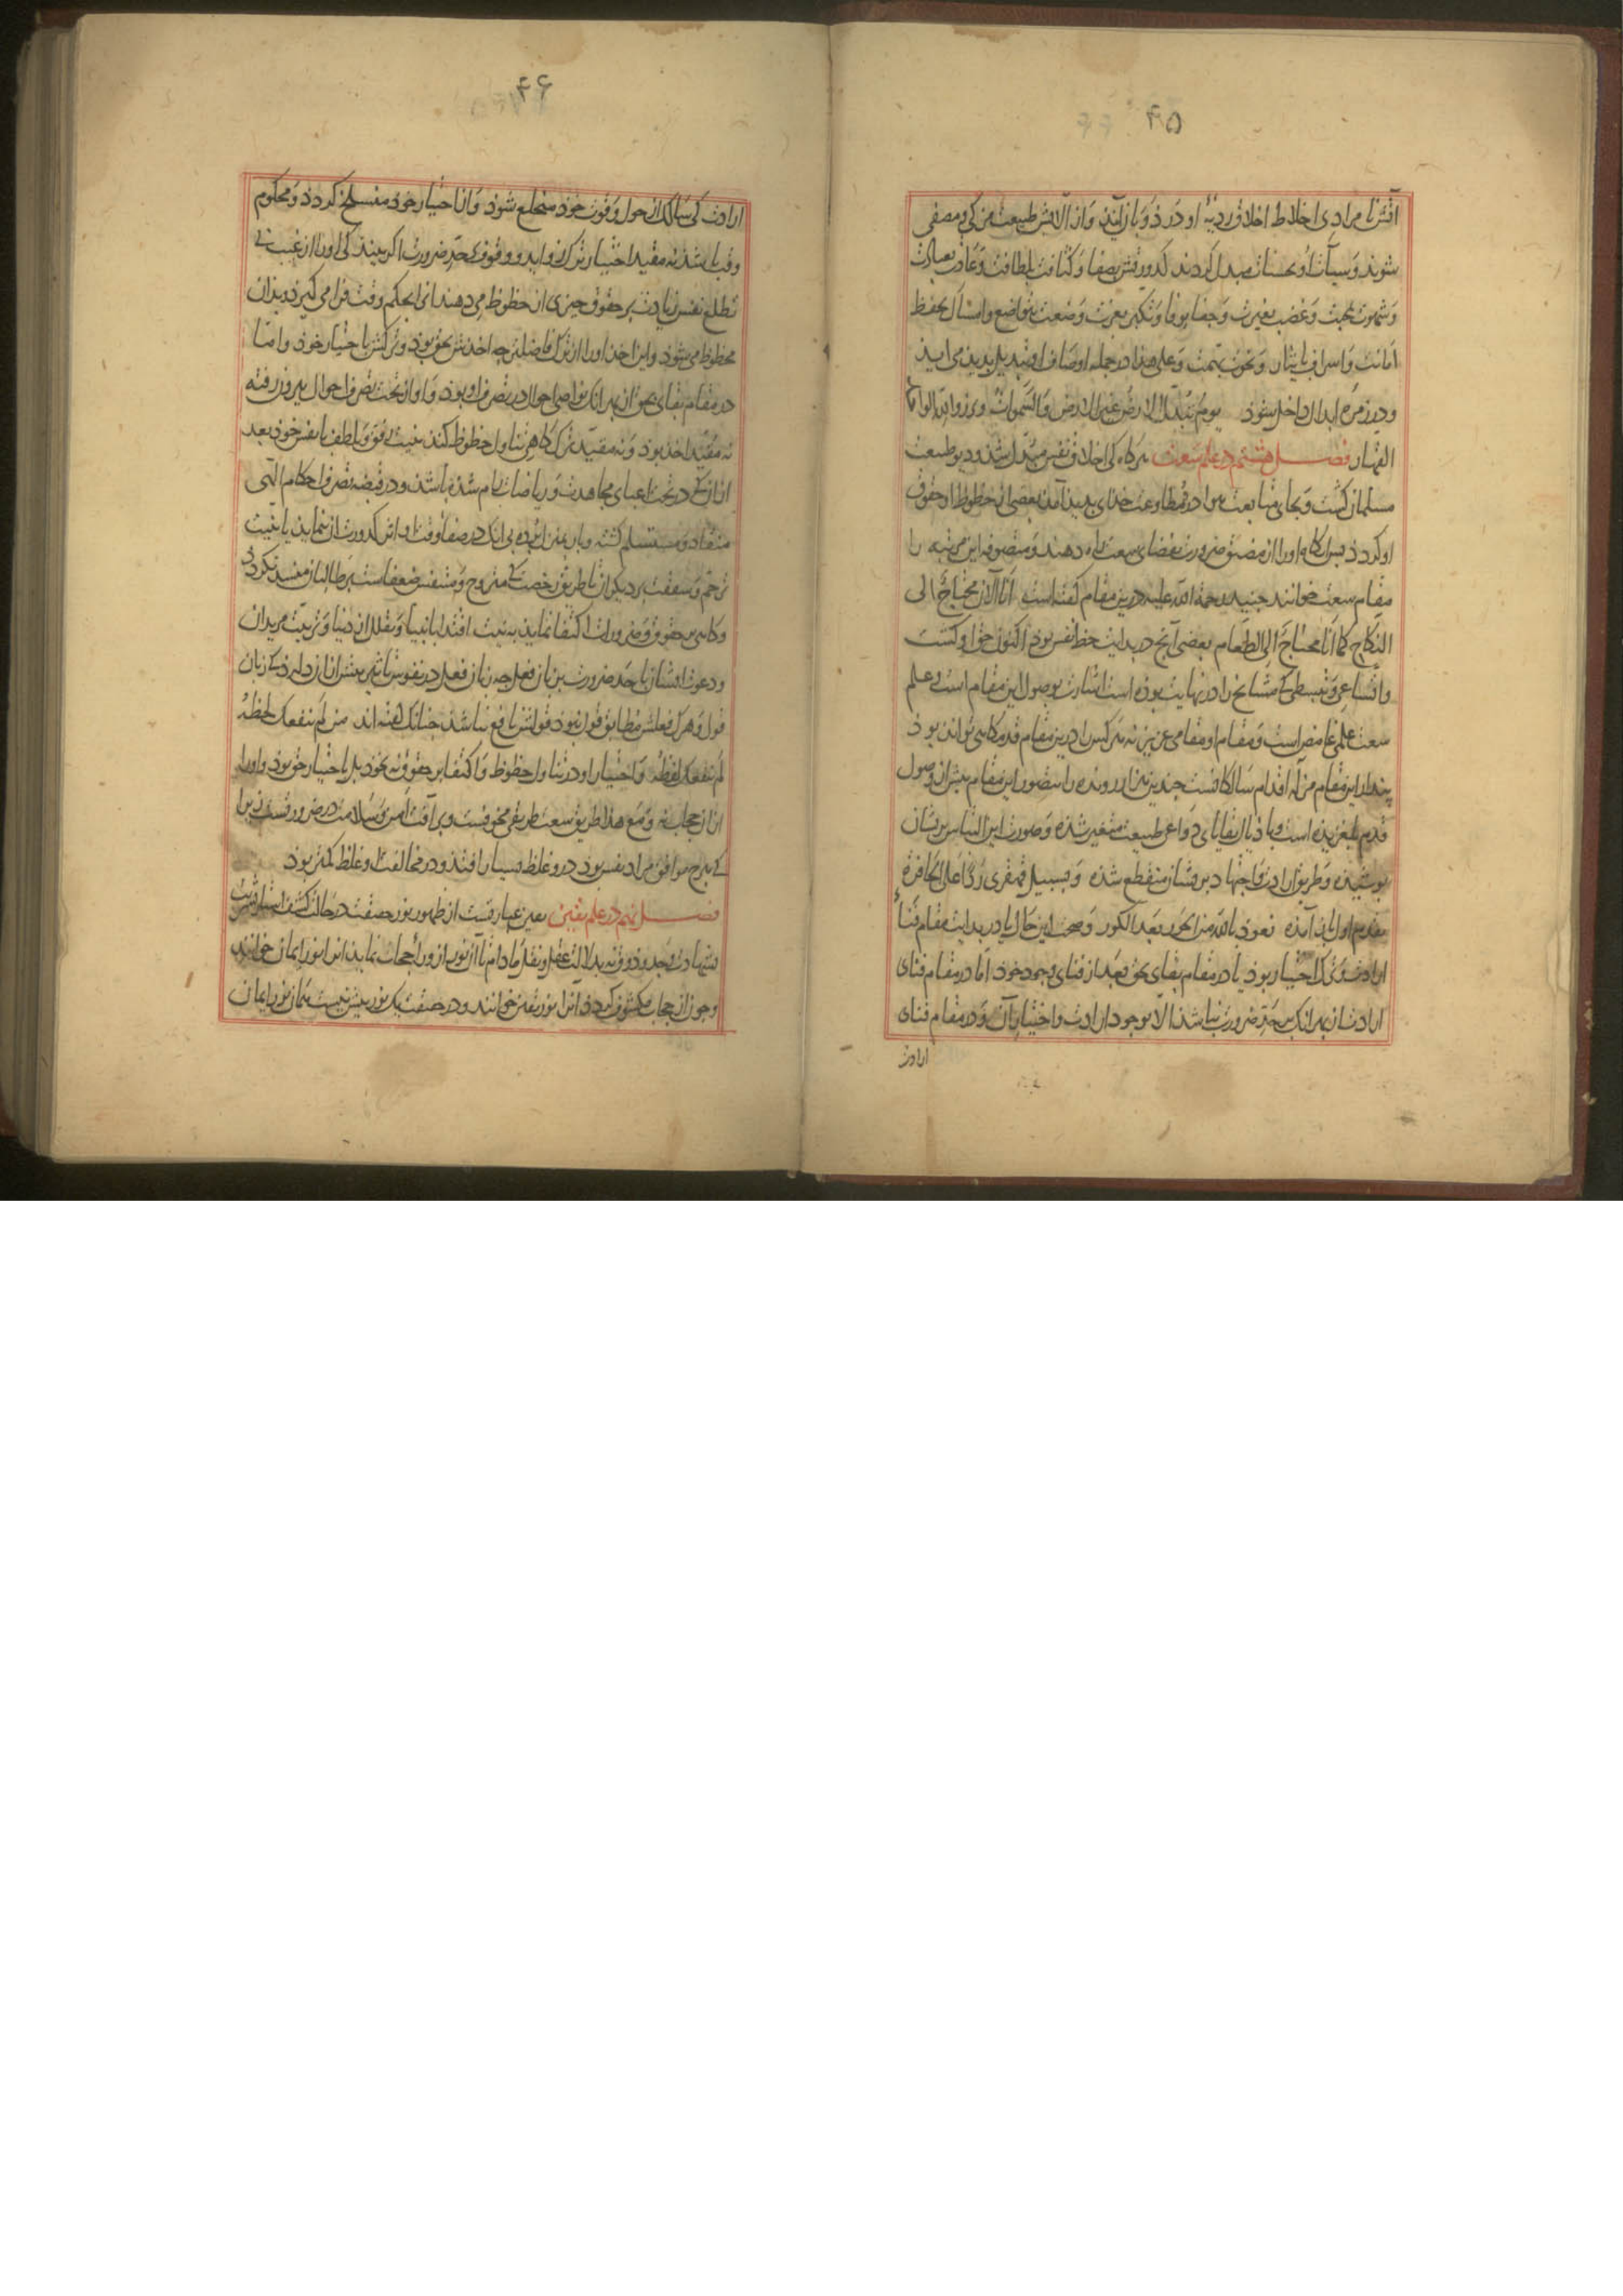 ۴۵
آتش نامرادی اخلاط اخلاق ردیّهٔ او در ذوبان آیند و از آلایش طبیعت مزکی و مصفی
شوند و سیآت او بحسنات مبدل کردند کدورتش بصفا و کثافت بلطافت و عادت بعبادت
و شهوت بمحبت و غضب بغیرت و جفا بوفا و تکبر بعزت و ضعت بتواضع و امساک بحفظ
امانت و اسراف بایثار و نخوت بهمت و علی هذا در جمله اوصاف او تبدیل پدید می آید
و در زمرهٔ ابدال داخل شود یوم تبدل الارض غیر الارض و السموات و برزوا لله الواحد
القهار فصل هشتم در علم سعت هرکاه کی اخلاق نفس مبدل شد و دیو طبیعت
مسلمان کشت و بجای متابعت هوا در مطاوعت خدای پدید آمد بعضی از حظوظ او حقوق
او کردد پس آنکاه او را از مضیق ضرورت بفضای سعت راه دهند و متصوفه این مرتبه را
مقام سعت خوانند جنید رحمة الله علیه درین مقام کفته است انا الآن محتاج الی
النکاح کما انا محتاج الی الطعام بعضی آنچ در بدایت حظ نفس بود اکنون حق او کشت
و اتساعی و تبسطی کی مشایخ را در نهایت بوده است اشارت بوصول این مقام است و علم
سعت علمی غامض است و مقام او مقامی عزیز نه هر کس را درین مقام قدمکاهی تواند بود
پندار این مقام مزلهٔ اقدام سالکانست چندین هزار رونده را بتصور این مقام پیش از وصول
قدم بلغزیده است و باذیال بقایای دواعی طبیعت متغیر شده و صورت این التباس بریشان
پوشیده و طریق ارادت و اجتهاد بریشان منقطع شده و بسبیل قهقری ردا علی الحافرة
بقدم اول باز آمده نعوذ بالله من الحور بعد الکور و صحت این حال یا در بدایت مقام فناء
ارادت و ترک اختیار بود یا در مقام بقای بحق بعد از فنای وجود خود اما در مقام فنای
ارادت از بهر انک بر حد ضرورت نباشد الا بوجود ارادت و اختیار آن و در مقام فنای
ارادت
۴۶
ارادت کی سالک از حول و قوت خود منخلع شود و از اختیار خود منسلخ کردد و محکوم
وقت باشد نه مقید اختیار ترک زواید و وقوف بر حد ضرورت اکر بیند کی او را از غیب بی
تطلع نفس زیادت بر حقوق چیزی از حظوظ می دهند آنرا بحکم وقت فرا می کیرد و بدان
محظوظ می شود و این اخذ او را از ترک فاضلتر چه اخذش بحق بود و ترکش باختیار خود و اما
در مقام بقای بحق از بهر انک نواصی احوال در تصرف او بود و او از تحت تصرف احوال بیرون رفته
نه مقید اخذ بود و نه مقید ترک کاهی تناول حظوظ کند بنیت رفق و لطف با نفس خود بعد
از آن کی در تحت اعبای مجاهدت و ریاضات رام شده باشد و در قبضه تصرف احکام الهی
منقاد و مستسلم کشته و باربر بی انک در صفا وقت او اثر کدورت از نماید یا بنیت
ترحم و شفقت بر دیکران تا طریق رخصت کی متروح و متنفس ضعفاست بر طالبان منسد نکردد
و کاهی بر حقوق و ضرورات اکتفا نماید به نیت اقتدا بانبیا و تقلل از دنیا و تربیت مریدان
و دعوت ایشان با حد ضرورت بزبان فعل چه زبان فعل در نفوس تاثیر بیش از آن دارد کی زبان
قول و هرک فعلش مطابق قول نبود قولش نافع نباشد چنانک کفته اند من لم ینفعک لحظه
لم ینفعک لفظه و اختیار او در تناول حظوظ و اکتفا بر حقوق نه بخود بل باختیار حق بود و او را
از آن حجاب نه و مع هذا طریق سعت طریقی مخوفست و برآفت امن و سلامت در ضرورتست زیرا
کی هرچ موافق مراد نفس بود درو غلط بسیار افتد و در مخالفت او غلط کمتر بود
فصل نهم در علم یقین یقین عبارتست از ظهور نور حقیقت در حالت کشف استار بشریت
بشهادت وجد و ذوق نه بدلالت عقل و نقل و مادام تا آن نور از وراء حجاب نماید آنرا نور ایمان خوانند
و چون از حجاب مکشوف کردد آنرا نور یقین خوانند و در حقیقت یک نور بیش نیست همان نور ایمان